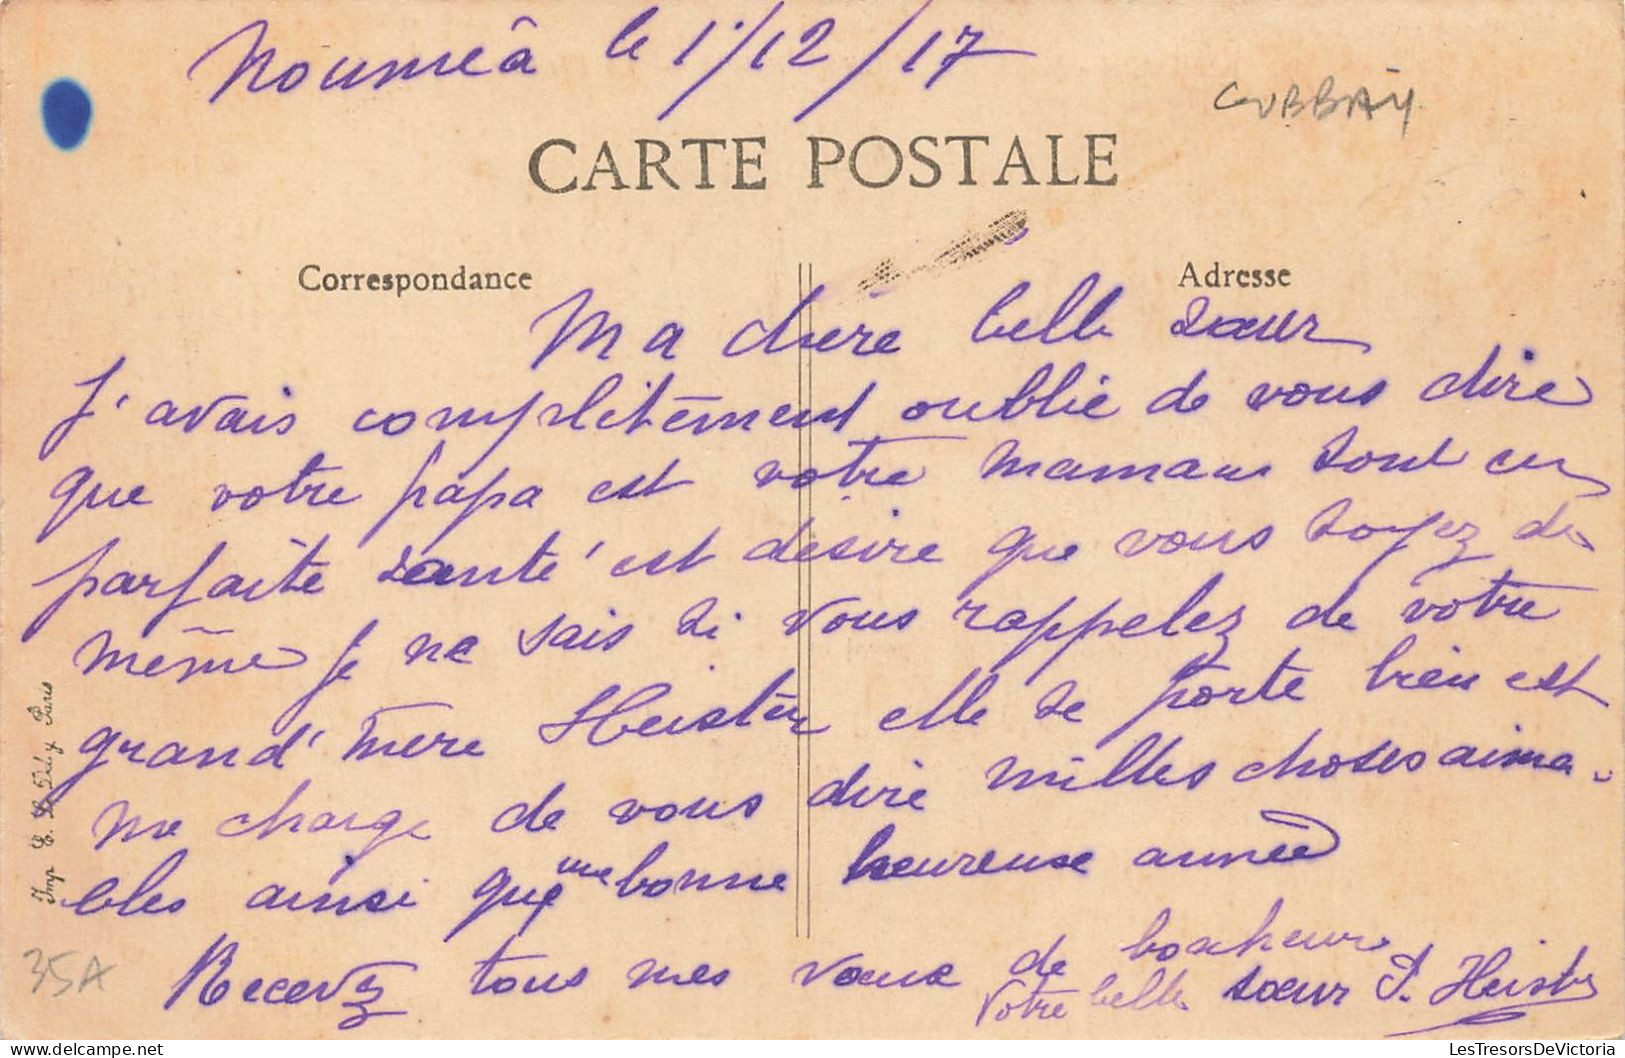 Nouméa le 1/12/17
CARTE POSTALE
Correspondance
Adresse
Ma chere belle sœur
J'avais complitément oublié de vous dire
que votre papa est votre maman sont en
parfaite santé est désire que vous soyez de
même je ne sais si vous rappelez de votre
grand' mère Heister elle se porte bien est
me charge de vous dire milles choses aima-
bles ainsi que une bonne heureuse année
Recevez tous mes vœux de bonheur
Votre belle sœur P. Heister
Imp. E. Le Deley Paris
35A
LesTresorsDeVictoria